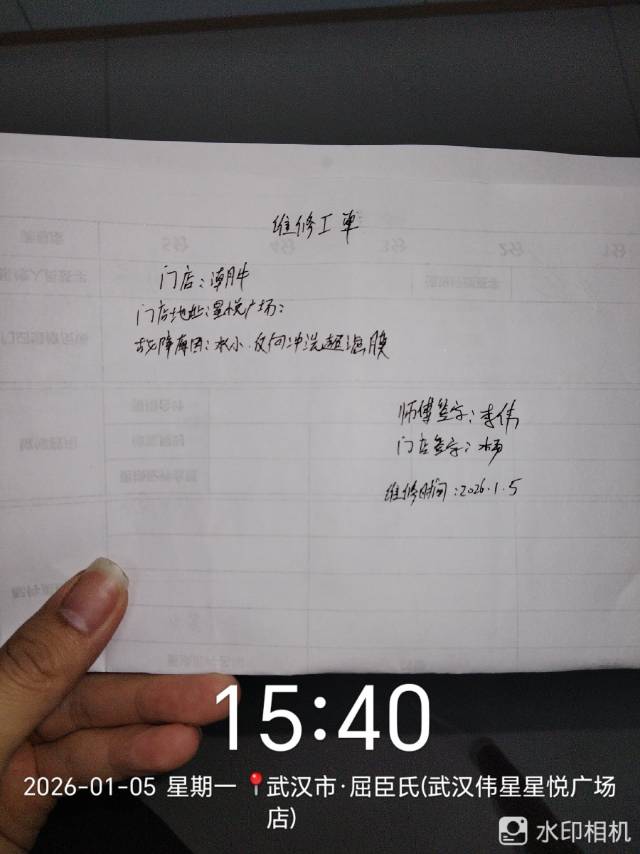 维修工单
门店：潮牛
门店地址：星悦广场：
故障原因：水小.反向冲洗超滤膜
师傅签字：李伟
门店签字：
维修时间：2026.1.5
15:40
2026-01-05 星期一 武汉市·屈臣氏(武汉伟星星悦广场
店)
水印相机